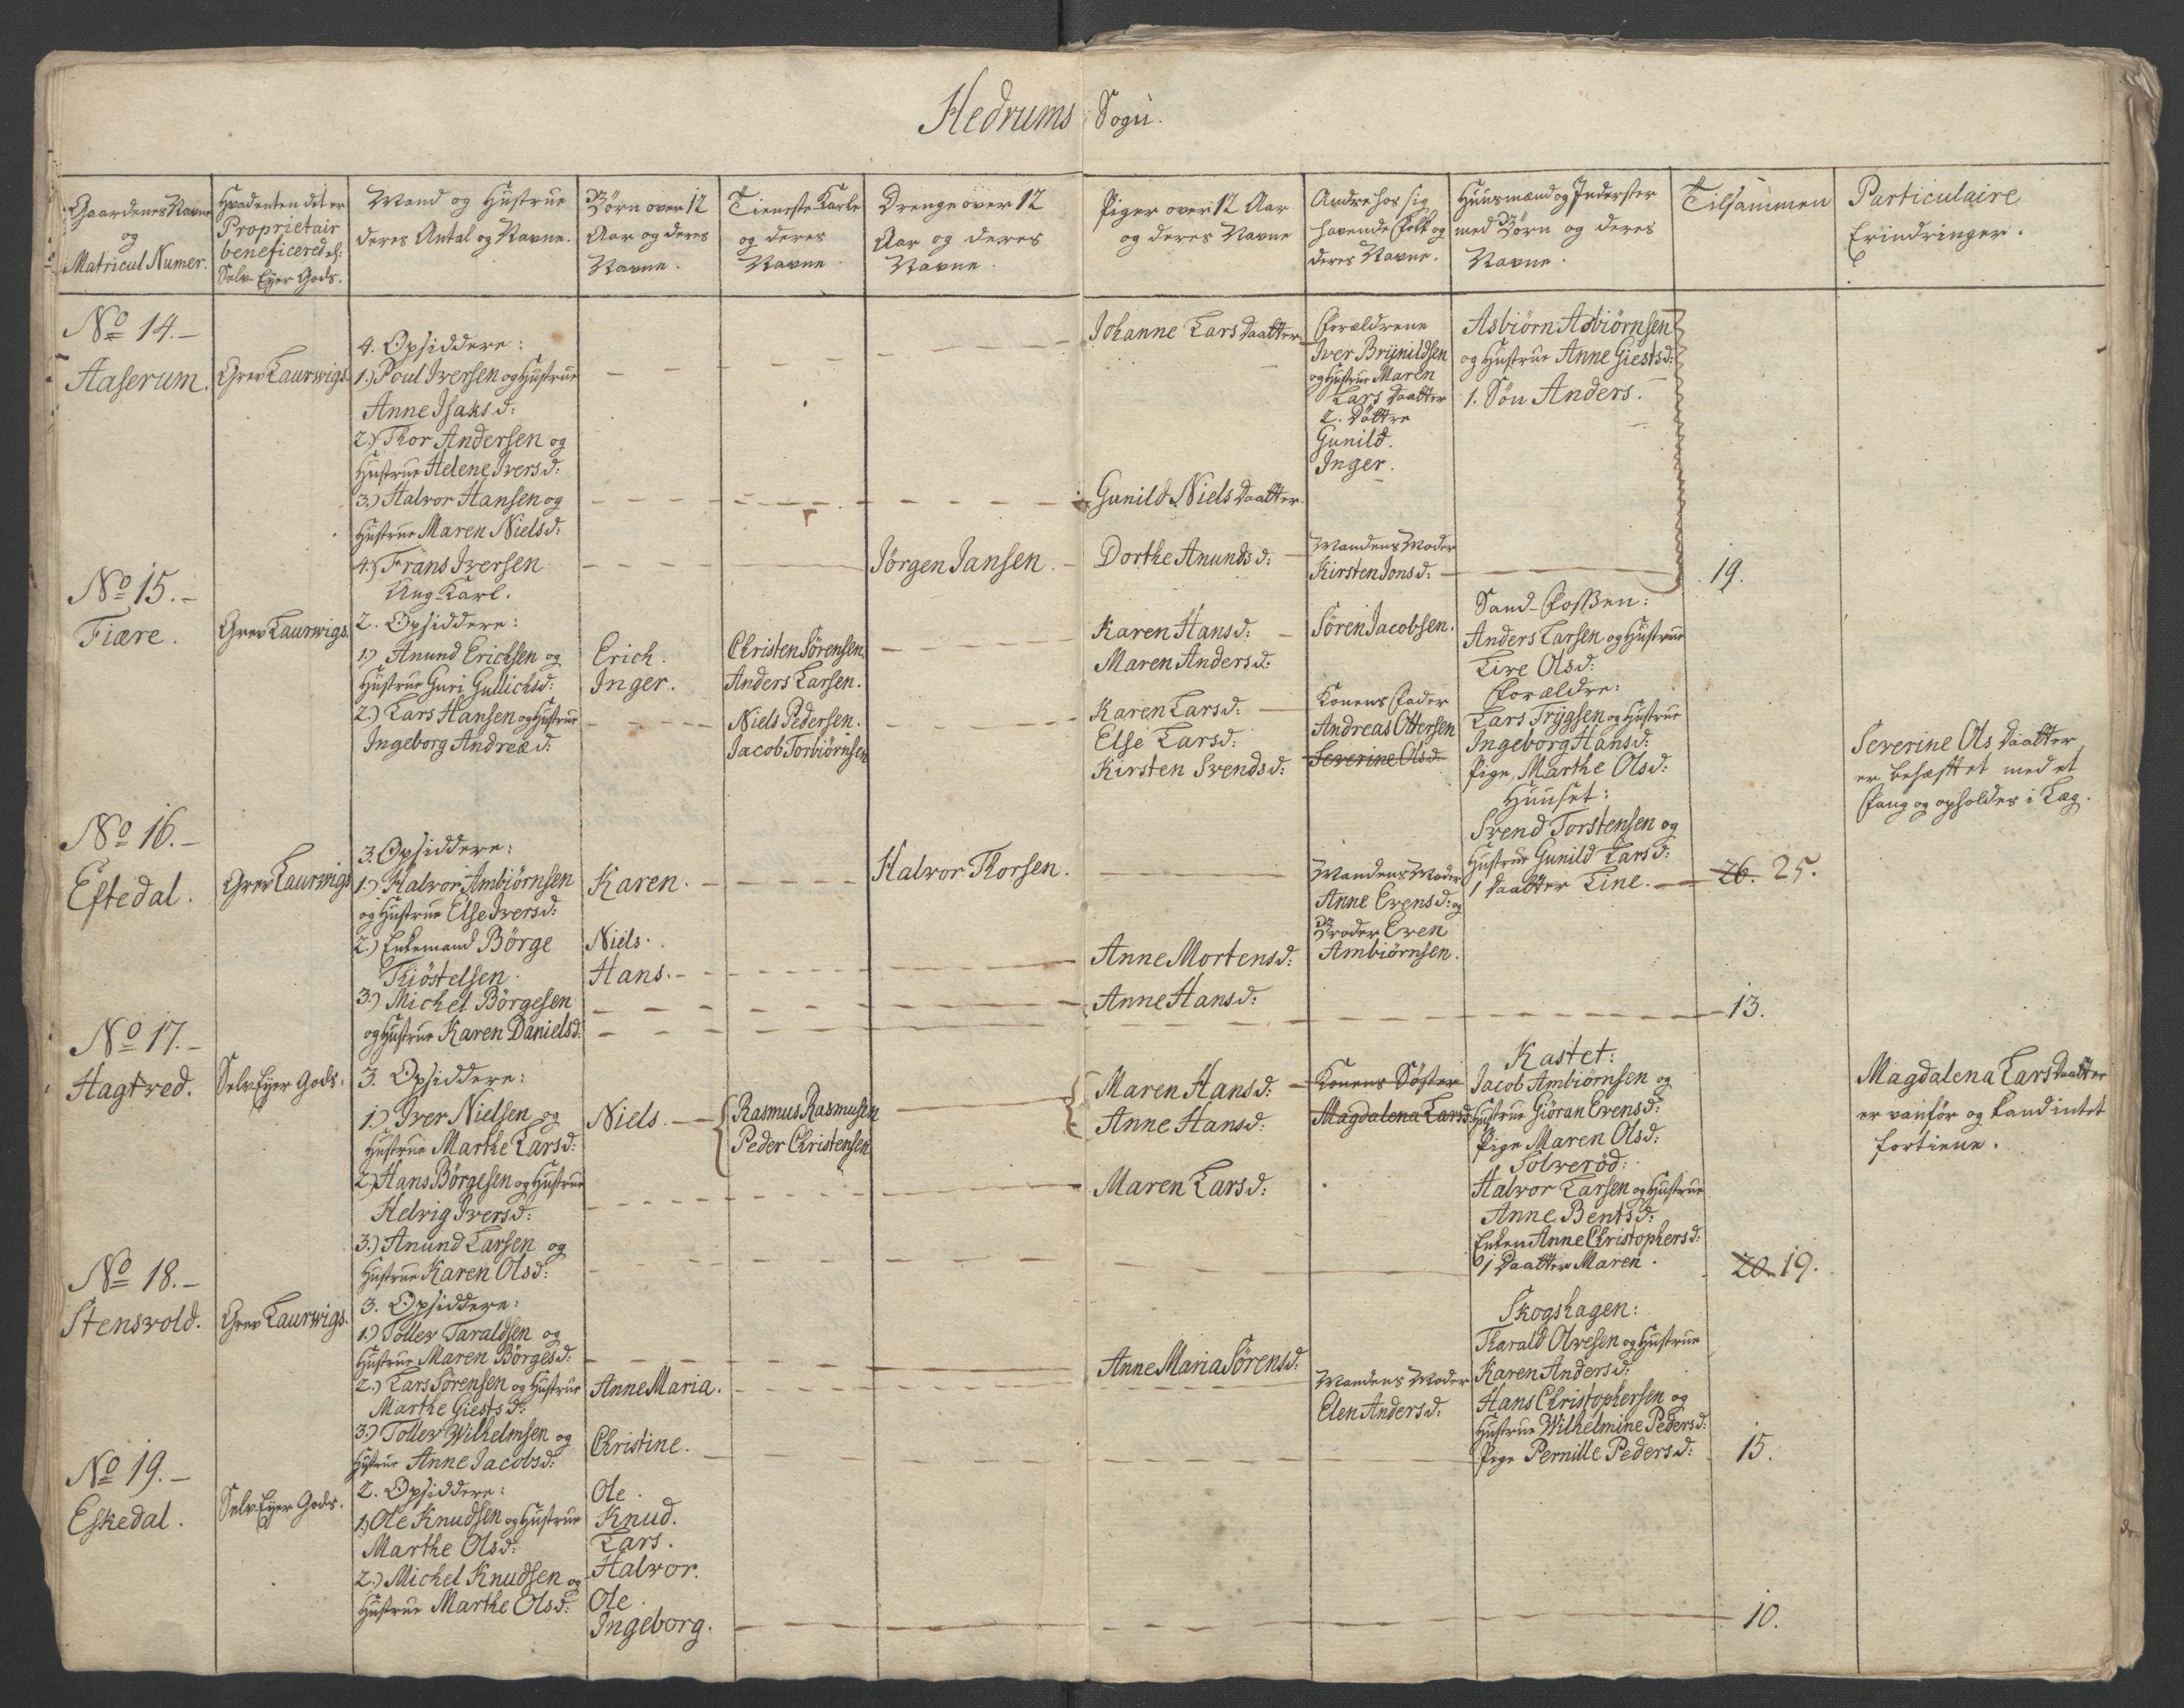 Hedrums Sogn.
Gaardenes Navne
og
Matricul Numer.
Hvadenten det er
Proprietair
beneficered el:
Selv-Eyer Gods.
Mand og Hustrue
deres Antal og Navne.
Børn over 12
Aar og deres
Navne.
Tieneste-Karle
og deres
Navne.
Drenge over 12
Aar og deres
Navne.
Piger over 12 Aar
og deres Navne
Andre hos sig
havende Folk og
deres Navne.
Huusmænd og Inderster
med Børn og deres
Navne.
Tilsammen
Particulaire
Erindringer.
No 14.-
Aaserum.
Grev Laurwigs.
4. Opsiddere:
1.) Poul Iversen og Hustrue
Anne Isaks d:
2.) Thor Andersen og
Hustrue Helene Ivers d:
3.) Halvor Hansen og
Hustrue Maren Niels d:
4.) Frans Iversen
Ung-Karl.
Jørgen Jansen.
Johanne Lars Daatter.
Gunild Niels Daatter.
Dorthe Anunds d:
Forældrene
Iver Brynildsen
og Hustrue Maren
Lars Daatter
2. Døttre
Gunild.
Inger.
Mandens Moder
Kirsten Jons d:
Asbiørn Asbiørnsen
og Hustrue Anne Giests d:
1. Søn Anders.
19.
No 15.-
Fiære.
Grev Laurwigs.
2. Opsiddere:
1.) Anund Erichsen og
Hustrue Guri Gullichs d:
2.) Lars Hansen og Hustrue
Ingeborg Andreæ d:
Erich.
Inger.
Christen Sørensen.
Anders Larsen.
Niels Pedersen.
Jacob Torbiørnsen
Karen Hans d:
Maren Anders d:
Karen Lars d:
Else Lars d:
Kirsten Svends d:
Søren Jacobsen.
Konens Fader
Andreas Ottersen
Severine Ols d:
Sand-Fossen:
Anders Larsen og Hustrue
Live Ols d:
Forældre:
Lars Trygsen og Hustrue
Ingeborg Hans d:
Pige, Marthe Ols d:
Huuset:
Svend Torstensen og
Hustrue Gunild Lars d:
1 Daatter Line.
26. 25.
Severine Ols Daatter
er behæftet med et
Fang og opholdes i Læg.
No 16.-
Eftedal.
Grev Laurwigs
3. Opsiddere:
1.) Halvor Ambiørnsen
og Hustrue Else Ivers d:
2.) Enkemand Børge
Kiöstelsen.
3.) Michel Børgesen
og Hustrue Karen Daniels d:
Karen.
Niels.
Hans.
Halvor Thorsen.
Anne Mortens d:
Anne Hans d:
Mandens Moder
Anne Evens d: og
Broder Even
Ambiørnsen.
13.
No 17.-
Hagtved.
Selv-Eyer Gods.
3. Opsiddere:
1.) Iver Nielsen og
Hustrue Marthe Lars d:
2.) Hans Børgesen og Hustrue
Helvig Ivers d:
3.) Anund Larsen og
Hustrue Karen Ols d:
Niels.
Rasmus Rasmusen
Peder Christensen
Maren Hans d:
Anne Hans d:
Maren Lars d:
Konens Søster
Magdalena Lars d:
Kastet:
Jacob Ambiørnsen og
Hustrue Giöran Evens d:
Pige Maren Ols d:
Solverød:
Halvor Larsen og Hustrue
Anne Bents d:
Enken Anne Christophers d:
1 Daatter Maren.
20. 19.
Magdalena Lars Daatter
er vanför og kand intet
fortiene.
No 18.-
Stensvold.
Grev Laurwigs.
3. Opsiddere:
1.) Tollev Taraldsen og
Hustrue Maren Børges d:
2.) Lars Sørensen og Hustrue
Marthe Giests d:
3.) Tollev Wilhelmsen og
Hustrue Anne Jacobs d:
Anne Maria.
Christine.
Anne Maria Sørens d:
Mandens Moder
Elen Anders d:
Skogshagen:
Tharald Olvesen og Hustrue
Karen Anders d:
Hans Christophersen og
Hustrue Wilhelmine Peders d:
Pige Pernille Peders d:
15.
No 19.-
Eskedal.
Selv-Eyer Gods.
2. Opsiddere:
1.) Ole Knudsen og Hustrue
Marthe Ols d:
2.) Michel Knudsen og
Hustrue Marthe Ols d:
Ole.
Knud.
Lars.
Halvor.
Ole.
Ingeborg.
10.